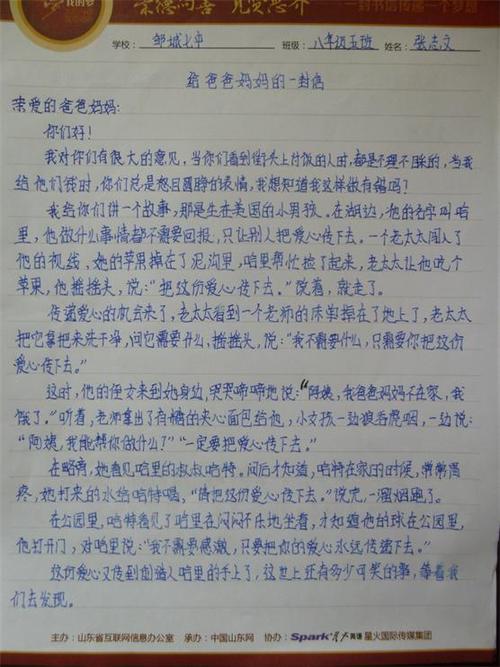 崇德向善 见贤思齐
一封书信传递一个梦想
学校: 邹城七中 班级: 八年级五班 姓名: 张志文
给爸爸妈妈的一封信
亲爱的爸爸妈妈:
你们好!
我对你们有很大的意见,当你们看到街头上讨饭的人时,都是不理不睬的,当我
给他们钱时,你们总是怒目圆睁的表情,我想知道我这样做有错吗?
我给你们讲一个故事,那是生在美国的小男孩。在湖边,他的名字叫哈
里,他做什么事情都不需要回报,只让别人把爱心传下去。一个老太太闯入了
他的视线、她的苹果掉在了泥沟里,哈里帮忙捡了起来,老太太让他吃个
苹果,他摇摇头,说:“把这份爱心传下去。”说着,就走了。
传递爱心的机会来了,老太太看到一个老师的床单掉在了地上了,老太太
把它拿起来洗干净,问它需要什么,摇摇头,说:“我不需要什么,只需要你把这份
爱心传下去。”
这时,他的侄女来到她身边,哭哭啼啼地说:“阿姨,我爸爸妈妈不在家,我
饿了。”听着,老师拿出了有糖的夹心面包给他,小女孩一边狼吞虎咽,一边说:
“阿姨,我能帮你做什么?”“一定要把爱心传下去。”
在路旁,她看见哈里的叔叔哈特。问后才知道,哈特在家的时候,常常胃
疼,她打来的水给哈特喝,“请把这份爱心传下去。”说完,一溜烟跑了。
在公园里,哈特看见了哈里在闷闷不乐地坐着,才知道他的球在公园里,
他打开门,对哈里说:“我不需要感激,只要把你的爱心永远传递下去。”
这份爱心又传到创造人哈里的手上了,这世上还有多少可笑的事,等着我
们去发现。
主办:山东省互联网信息办公室 承办:中国山东网 协办:Spark 星火英语 星火国际传媒集团